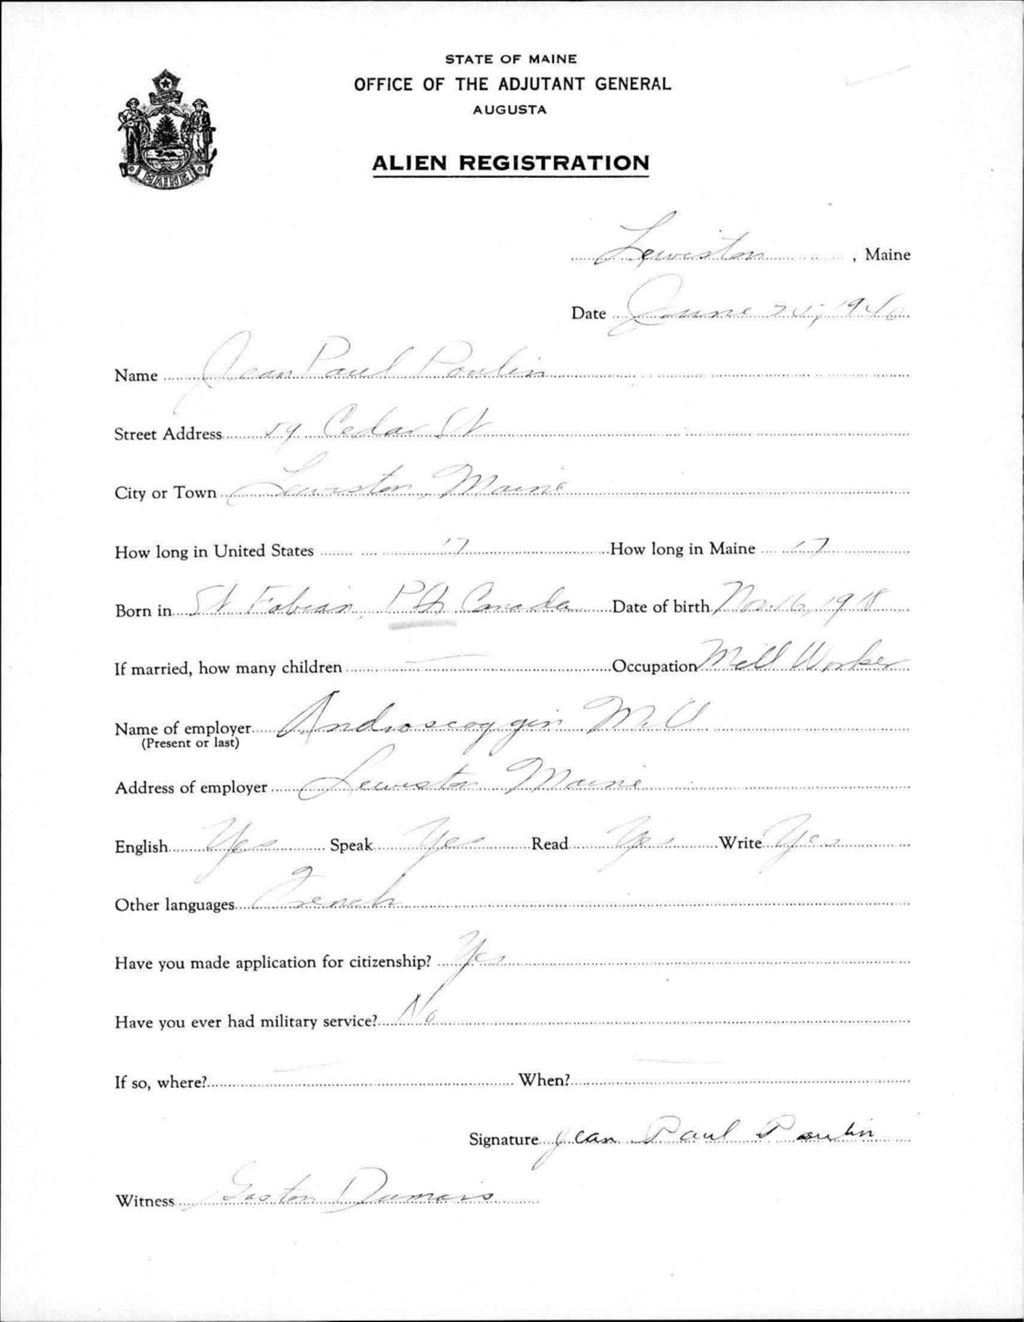 STATE OF MAINE
OFFICE OF THE ADJUTANT GENERAL
AUGUSTA
MAINE
ALIEN REGISTRATION
Lewiston, Maine
Date June 25, 1940
Name Jean Paul Poulin
Street Address 59 Cedar St
City or Town Lewiston, Maine
How long in United States 17 How long in Maine 17
Born in St Fabian, P.Q. Canada Date of birth Nov. 16, 1918
If married, how many children — Occupation Mill Worker
Name of employer Androscoggin Mill
(Present or last)
Address of employer Lewiston Maine
English Yes Speak Yes Read Yes Write Yes
Other languages French
Have you made application for citizenship? Yes
Have you ever had military service? No
If so, where? — When? —
Signature Jean Paul Poulin
Witness Gaston Dumais